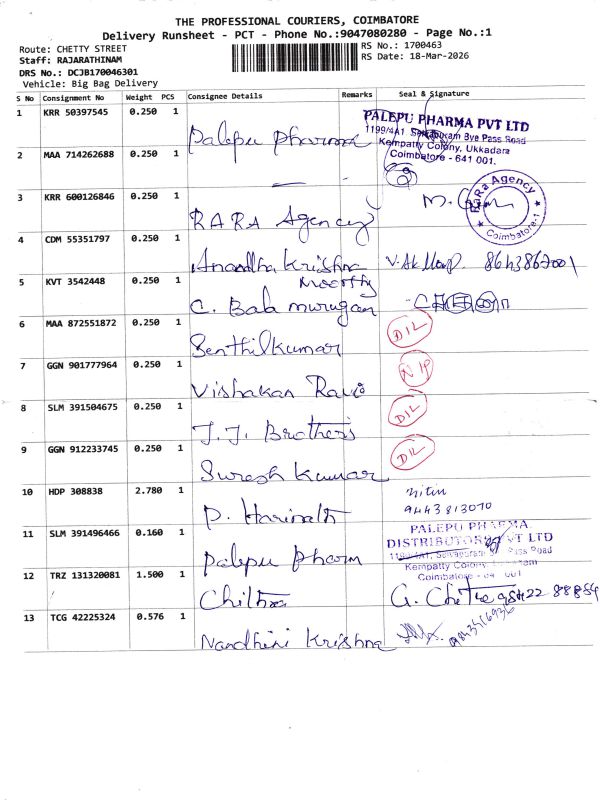 THE PROFESSIONAL COURIERS, COIMBATORE
Delivery Runsheet - PCT - Phone No.:9047080280 - Page No.:1
Route: CHETTY STREET
RS No.: 1700463
Staff: RAJARATHINAM
RS Date: 18-Mar-2026
DRS No.: DCJB170046301
Vehicle: Big Bag Delivery
S No Consignment No Weight PCS Consignee Details Remarks Seal & Signature
1 KRR 50397545 0.250 1 Palepu pharma
PALEPU PHARMA PVT LTD
1199/4A1 Bye Pass Road
Kempatty Colony, Ukkadara
Coimbatore - 641 001.
2 MAA 714262688 0.250 1
3 KRR 600126846 0.250 1 RARA Agency
RaRa Agency
Coimbatore-1
4 CDM 55351797 0.250 1 Anandha Krishna Moorthy
5 KVT 3542448 0.250 1 C. Bala murugan
6 MAA 872551872 0.250 1 Senthilkumar D/L
7 GGN 901777964 0.250 1 Vishakan Ravi
8 SLM 391504675 0.250 1 J.J. Brothers D/L
9 GGN 912233745 0.250 1 Suresh Kumar D/L
10 HDP 308838 2.780 1 P. Harinath nitin
9443813070
11 SLM 391496466 0.160 1 Palepu pharm
PALEPU PHARMA
DISTRIBUTORS PVT LTD
Pass Road
Kempatty Colony
Coimbatore
12 TRZ 131320081 1.500 1 Chithra
13 TCG 42225324 0.576 1 Nandhini Krishna